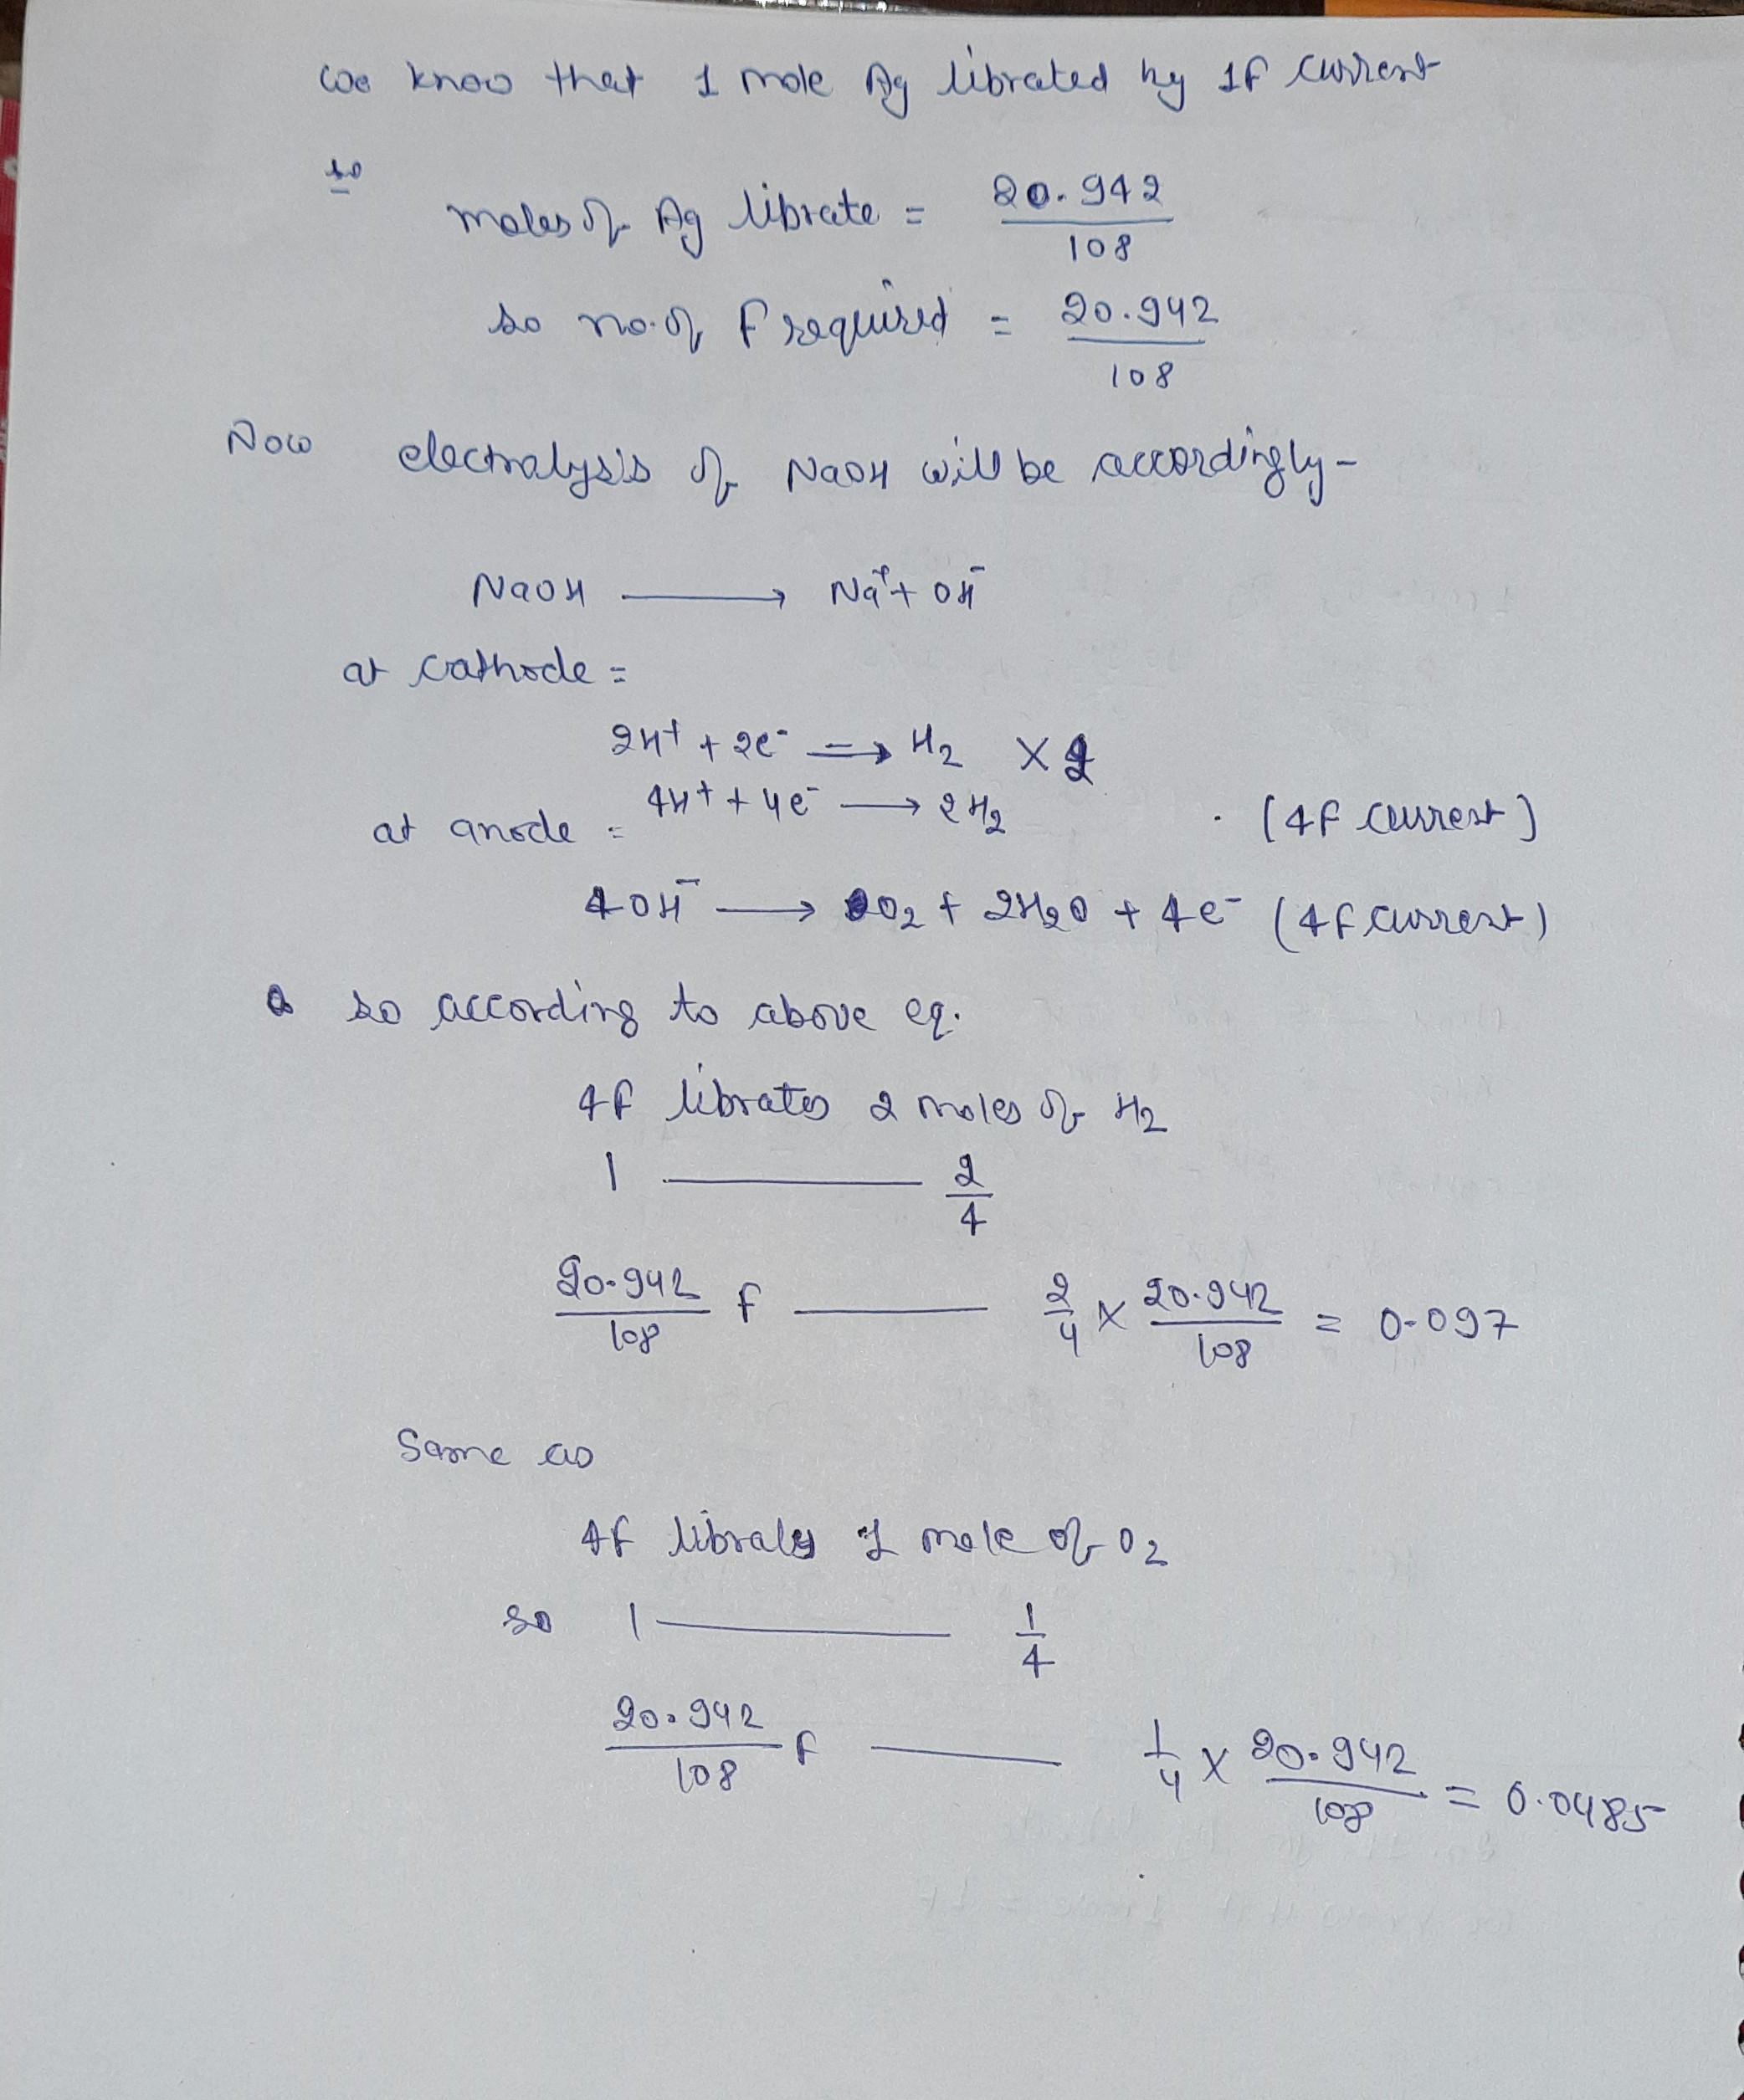 We know that 1 mole Ag librated by 1F current
so
moles of Ag librate = 20.942 / 108
so no. of F required = 20.942 / 108
Now electralysis of NaOH will be accordingly -
NaOH ⟶ Na⁺ + OH⁻
at cathode =
2H⁺ + 2e⁻ ⟶ H₂ × 2
4H⁺ + 4e⁻ ⟶ 2H₂ (4F current)
at anode =
4OH⁻ ⟶ O₂ + 2H₂O + 4e⁻ (4F current)
so according to above eq.
4F librates 2 moles of H₂
1 ⸺ 2/4
20.942/108 F ⸺ 2/4 × 20.942/108 = 0.097
Same as
4F librates 1 mole of O₂
so 1 ⸺ 1/4
20.942/108 F ⸺ 1/4 × 20.942/108 = 0.0485